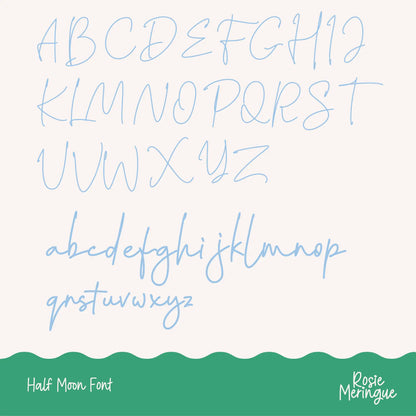 ABCDEFGHIJ
KLMNOPQRST
UVWXYZ
abcdefghijklmnop
qrstuvwxyz
Half Moon Font
Rosie
Meringue